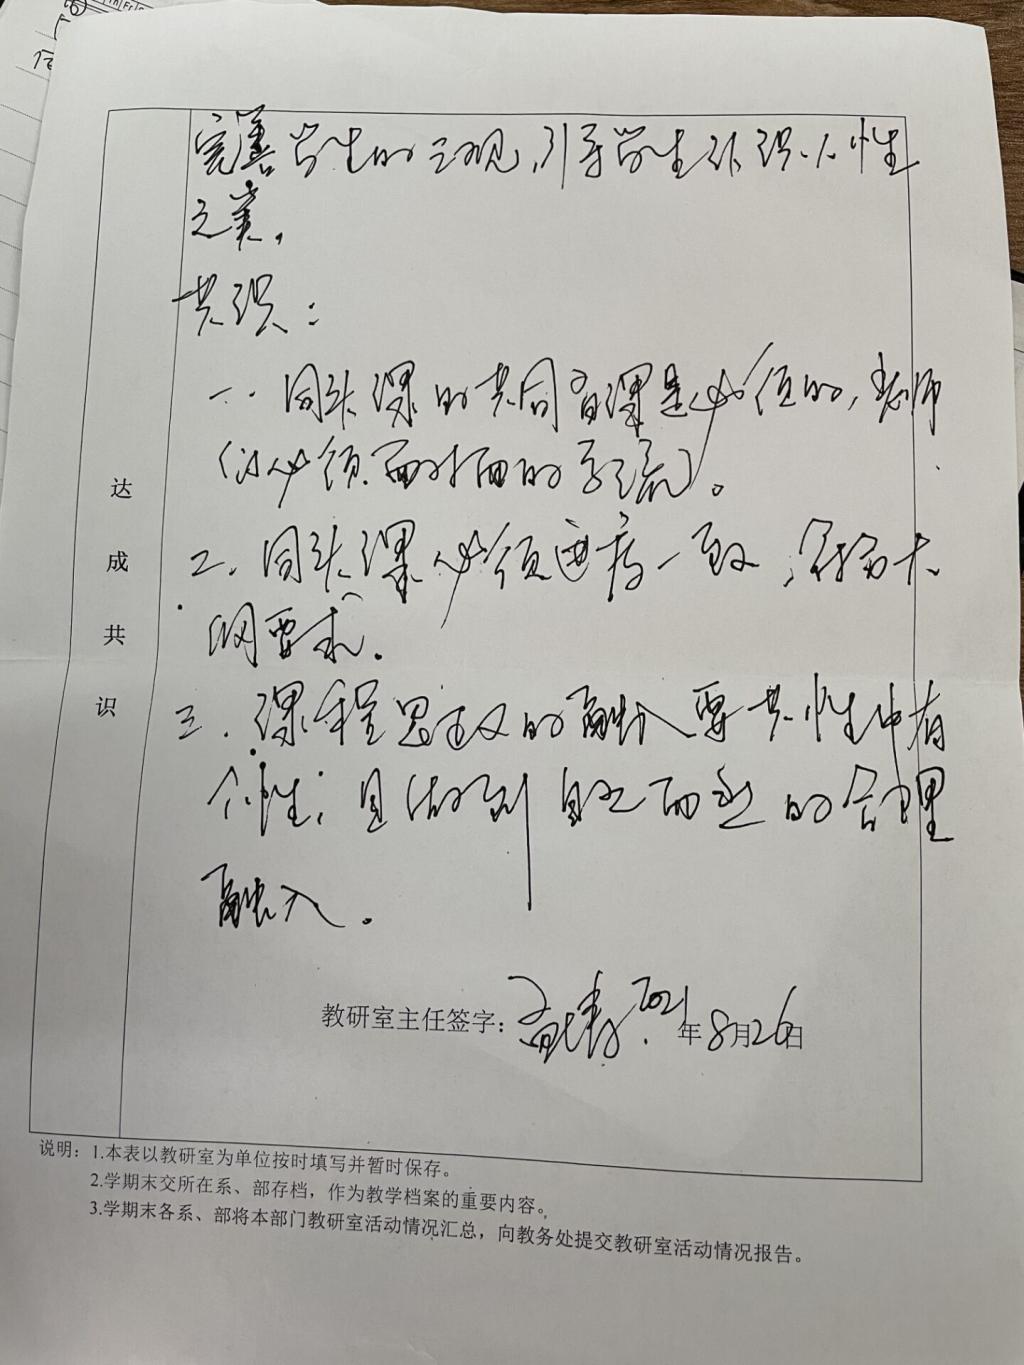 完善学生的三观,引导学生认识人性
之美。
共识:
一、同头课的共同备课是必须的,老师
们必须面对面的交流。
二、同头课必须进度一致,符合大
纲要求.
三、课程思政的融入要共性中有
个性;且做到自然而然的合理
融入.
达
成
共
识
教研室主任签字: 2021年8月26日
说明:1.本表以教研室为单位按时填写并暂时保存。
2.学期末交所在系、部存档,作为教学档案的重要内容。
3.学期末各系、部将本部门教研室活动情况汇总,向教务处提交教研室活动情况报告。